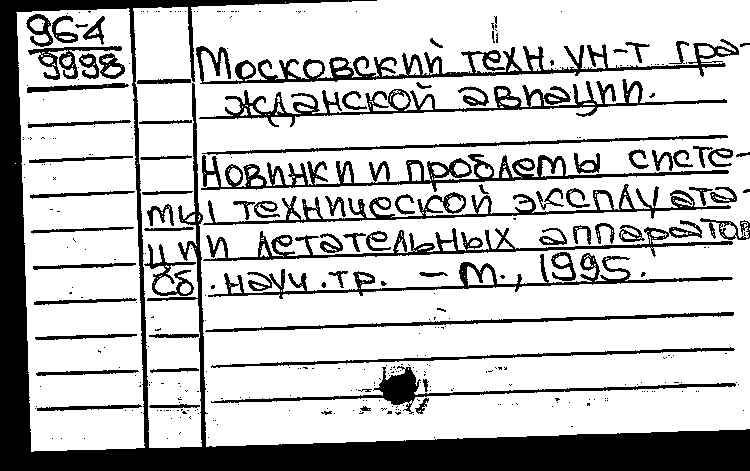 96-4
9998
Московский техн. ун-т гра-
жданской авиации.
Новинки и проблемы систе-
мы технической эксплуата-
ции летательных аппаратов
Сб. науч. тр. – М., 1995.